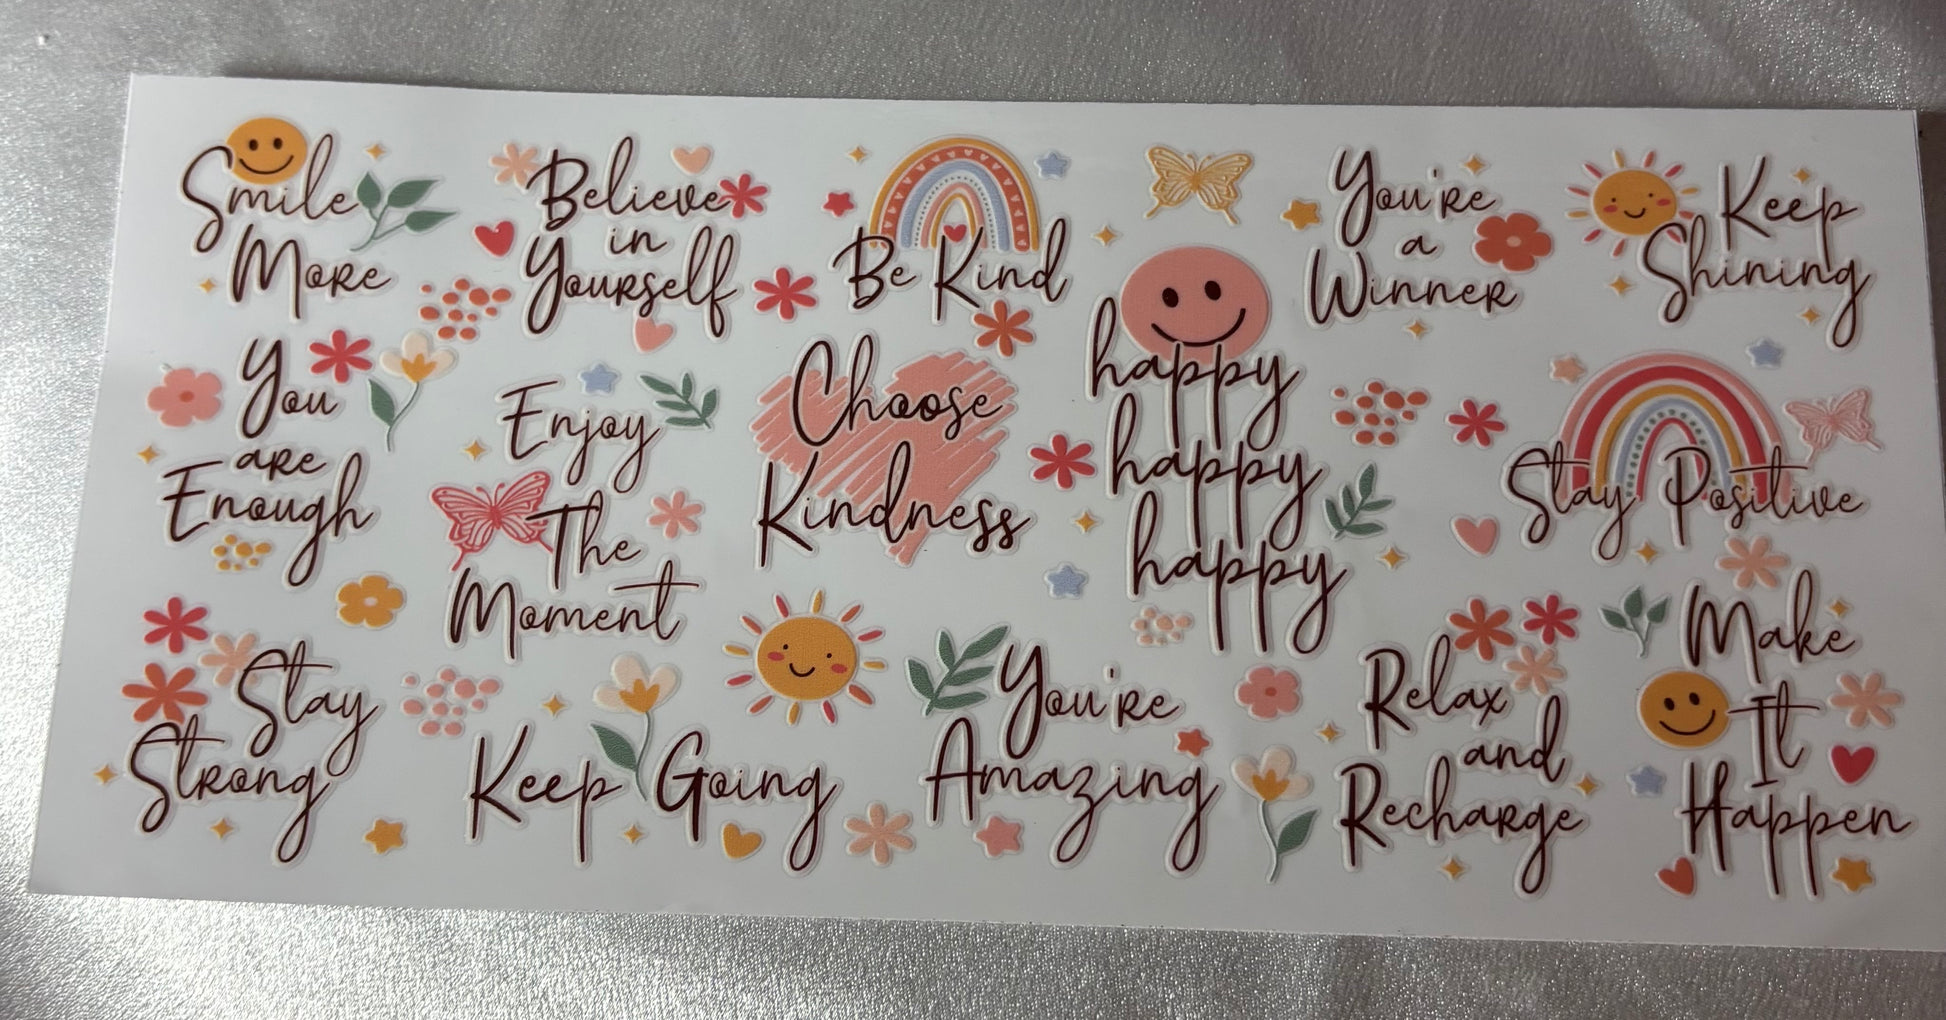 Smile
More
Believe
in
Yourself
Be Kind
You're
a
Winner
Keep
Shining
You
are
Enough
Enjoy
The
Moment
Choose
Kindness
happy
happy
happy
Stay Positive
Stay
Strong
Keep Going
You're
Amazing
Relax
and
Recharge
Make
It
Happen